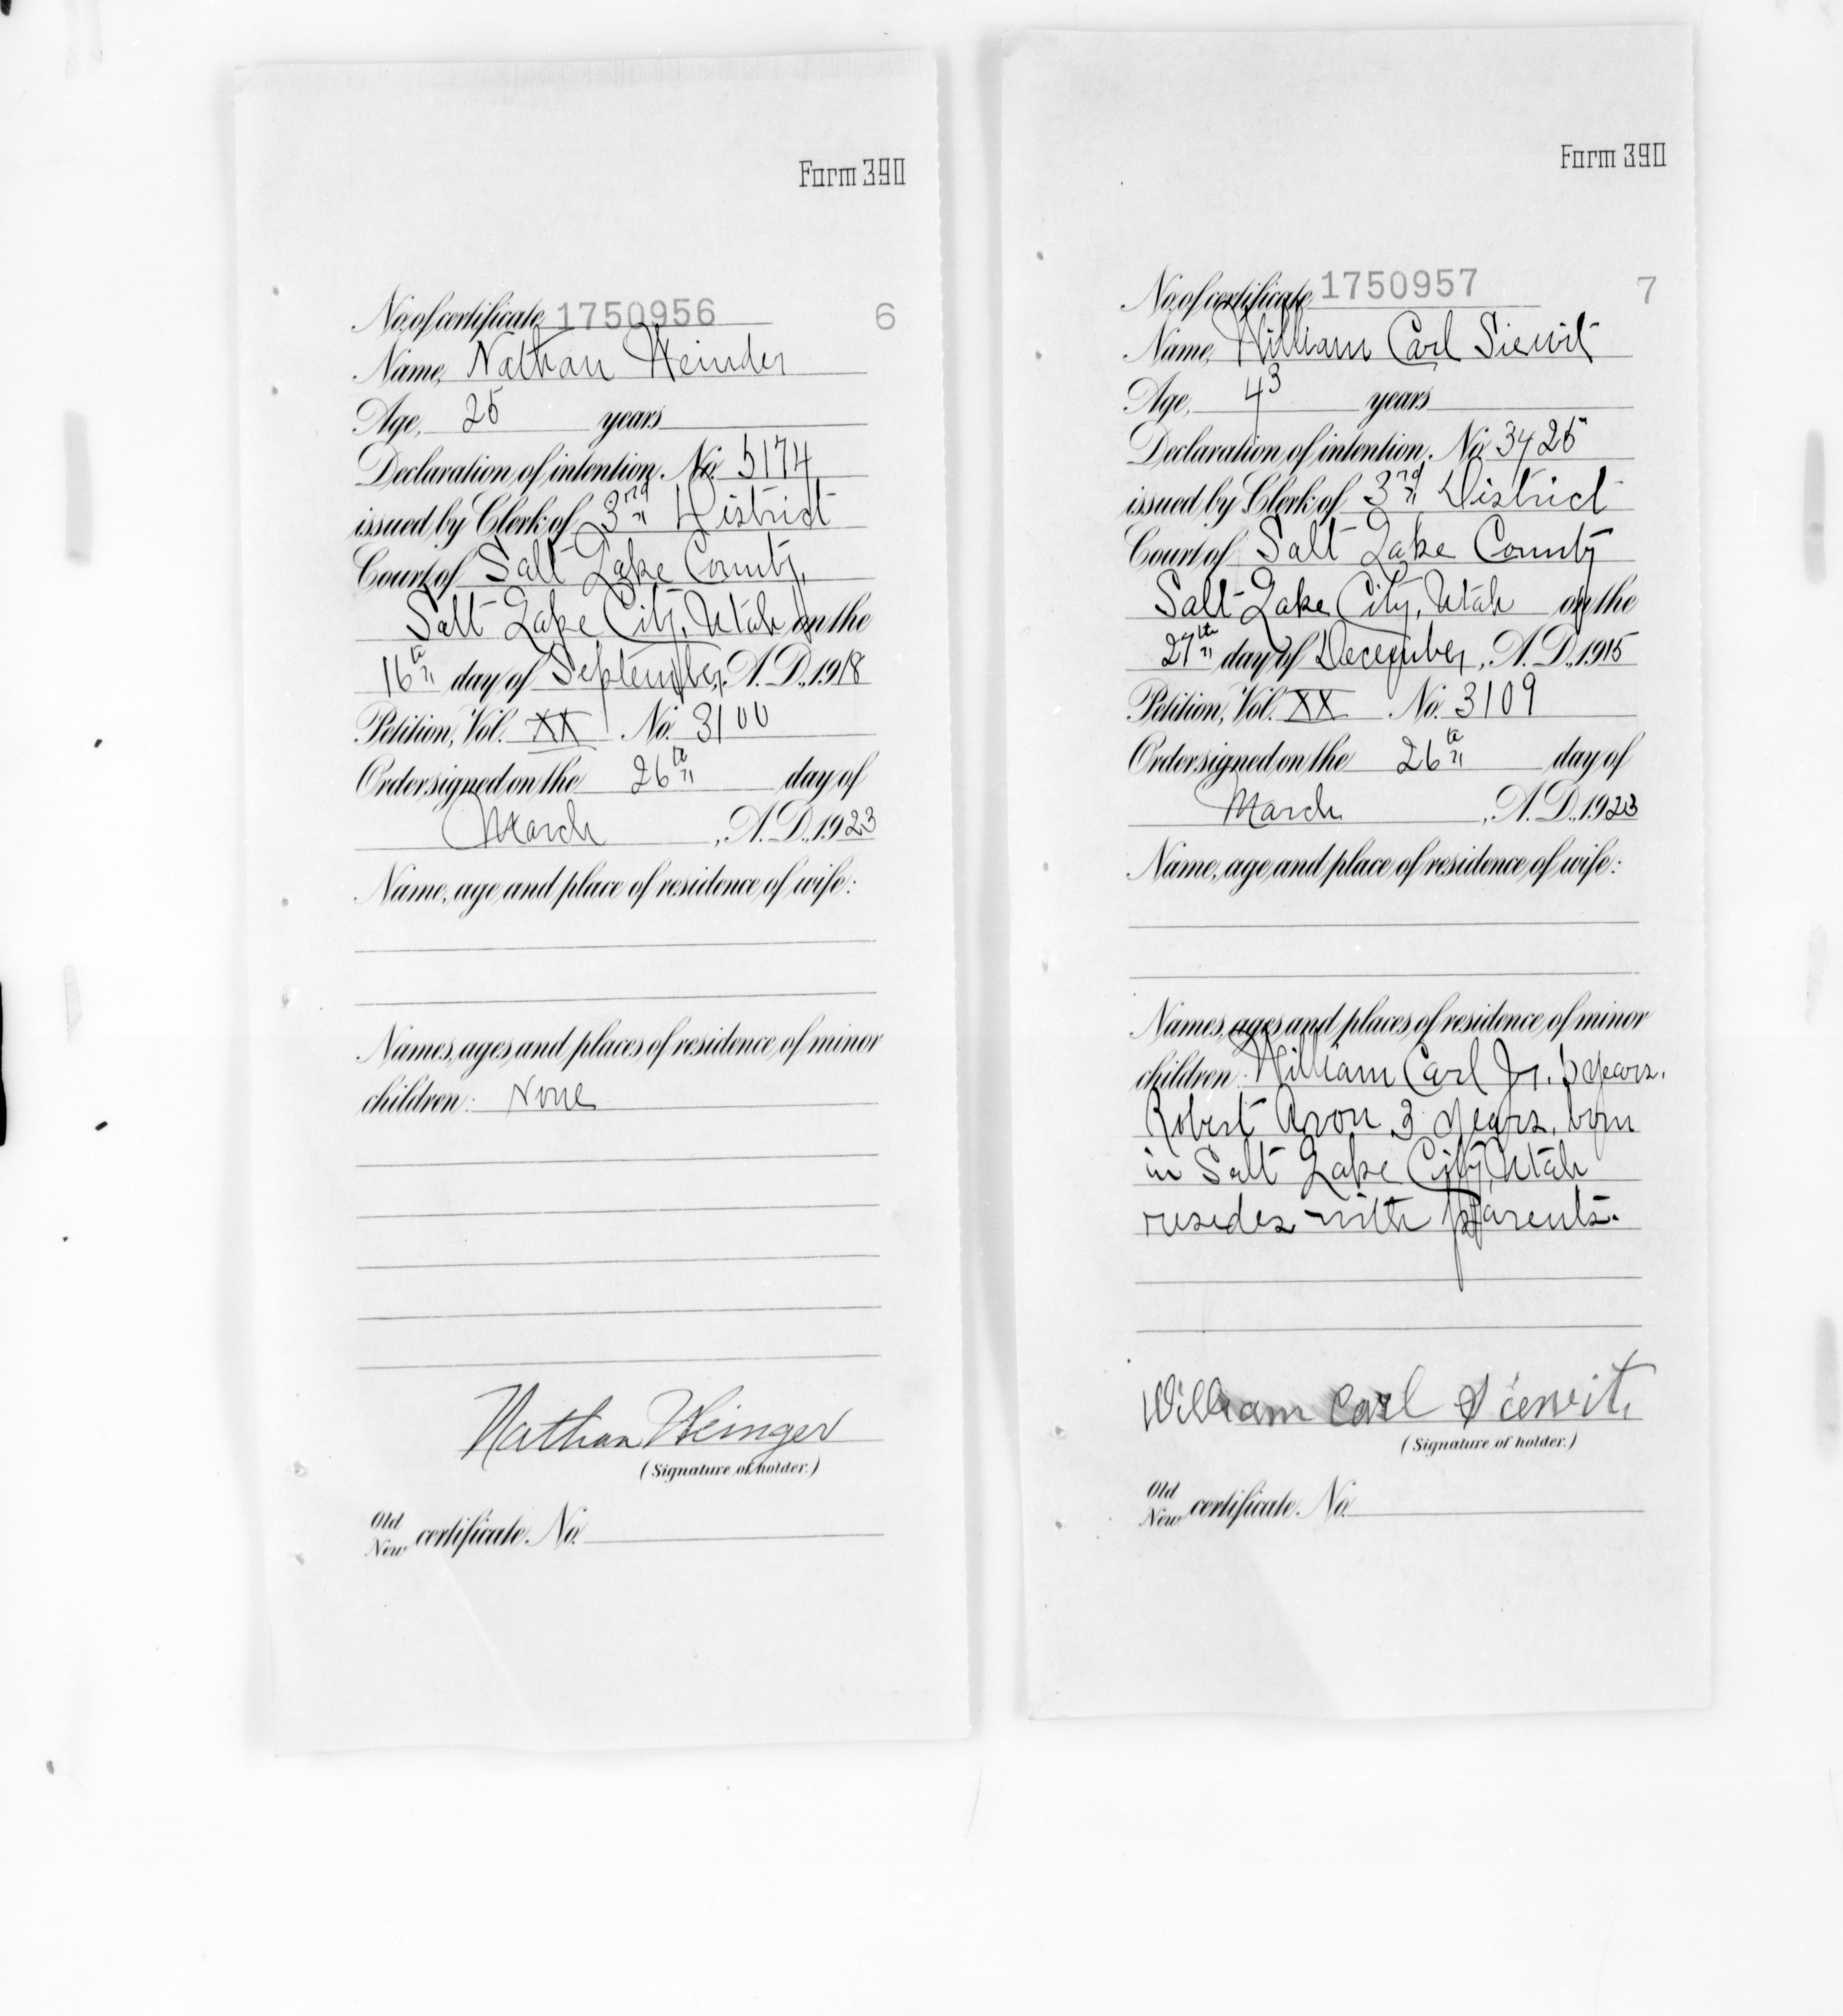 Form 390
No. of certificate 1750956 6
Name, Nathan
Age, 25 years
Declaration of intention, No. 5174
issued by Clerk of 3rd District
Court of Salt Lake County,
Salt Lake City, Utah on the
16th day of September, A. D., 1918
Petition, Vol. XX No. 3100
Order signed on the 26th day of
March , A. D., 1923
Name, age and place of residence of wife:
Names, ages and places of residence of minor
children: None
Nathan
(Signature of holder.)
Old
New certificate No.
Form 390
No. of certificate 1750957 7
Name, William Carl Siewit
Age, 43 years
Declaration of intention, No. 3425
issued by Clerk of 3rd District
Court of Salt Lake County
Salt Lake City, Utah on the
27th day of December, A. D., 1915
Petition, Vol. XX No. 3109
Order signed on the 26th day of
March , A. D., 1923
Name, age and place of residence of wife:
Names, ages and places of residence of minor
children: William Carl Jr. 5 years.
Robert Avon 3 years, born
in Salt Lake City, Utah
resides with parents.
William Carl Siewit.
(Signature of holder.)
Old
New certificate No.